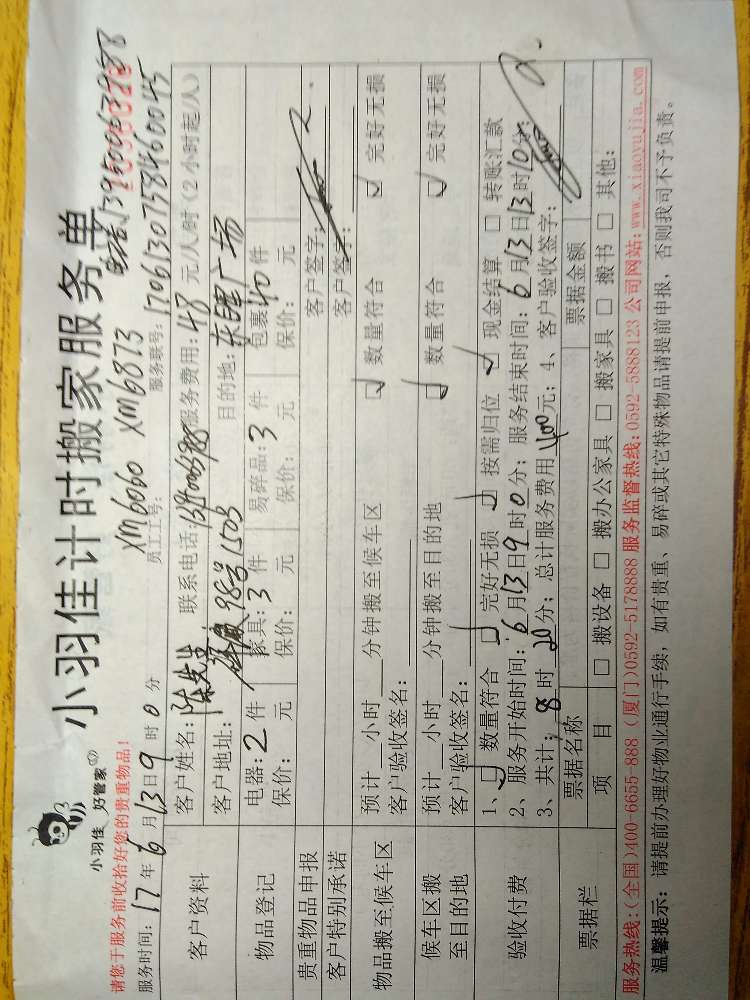 小羽佳 好管家
小羽佳计时搬家服务单
请您于服务前收拾好您的贵重物品!
XM6060 XM6873
服务时间: 17年6月13日9时0分 员工工号: 服务账号: 1706130758460045
客户资料
客户姓名: 陈先生 联系电话: 服务费用: 48 元/人/时(2小时起/人)
客户地址: 98号1503 目的地: 广场
物品登记
电器: 2 件 家具: 3 件 易碎品: 3 件 包裹 40 件
保价: 元 保价: 元 保价: 元 保价: 元
贵重物品申报 客户签字:
客户特别承诺 客户签字:
物品搬至候车区
预计 小时 分钟搬至候车区 数量符合 完好无损
客户验收签名:
候车区搬至目的地
预计 小时 分钟搬至目的地 数量符合 完好无损
客户验收签名:
验收付费
1、数量符合 完好无损 按需归位 现金结算 转账汇款
2、服务开始时间: 6月13日9时0分; 服务结束时间: 6月13日13时10分;
3、共计: 8 时 20分; 总计服务费用 400元; 4、客户验收签字:
票据栏
票据名称 票据金额
项 目 搬设备 搬办公家具 搬家具 搬书 其他:
服务热线:(全国)400-6655-888 (厦门)0592-5178888 服务监督热线:0592-5888123 公司网站:www.xiaoyujia.com
温馨提示: 请提前办理好物业通行手续, 如有贵重、易碎或其它特殊物品请提前申报, 否则我司不予负责。